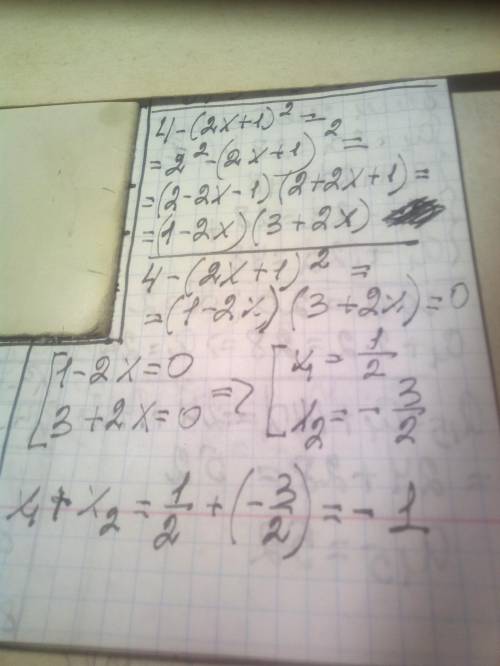 4-(2x+1)² =
= 2² - (2x+1)² =
= (2-2x-1)(2+2x+1) =
= (1-2x)(3+2x)
4-(2x+1)² =
= (1-2x)(3+2x) = 0
[1-2x=0 => [x₁ = 1/2
[3+2x=0 [x₂ = -3/2
x₁ + x₂ = 1/2 + (-3/2) = -1